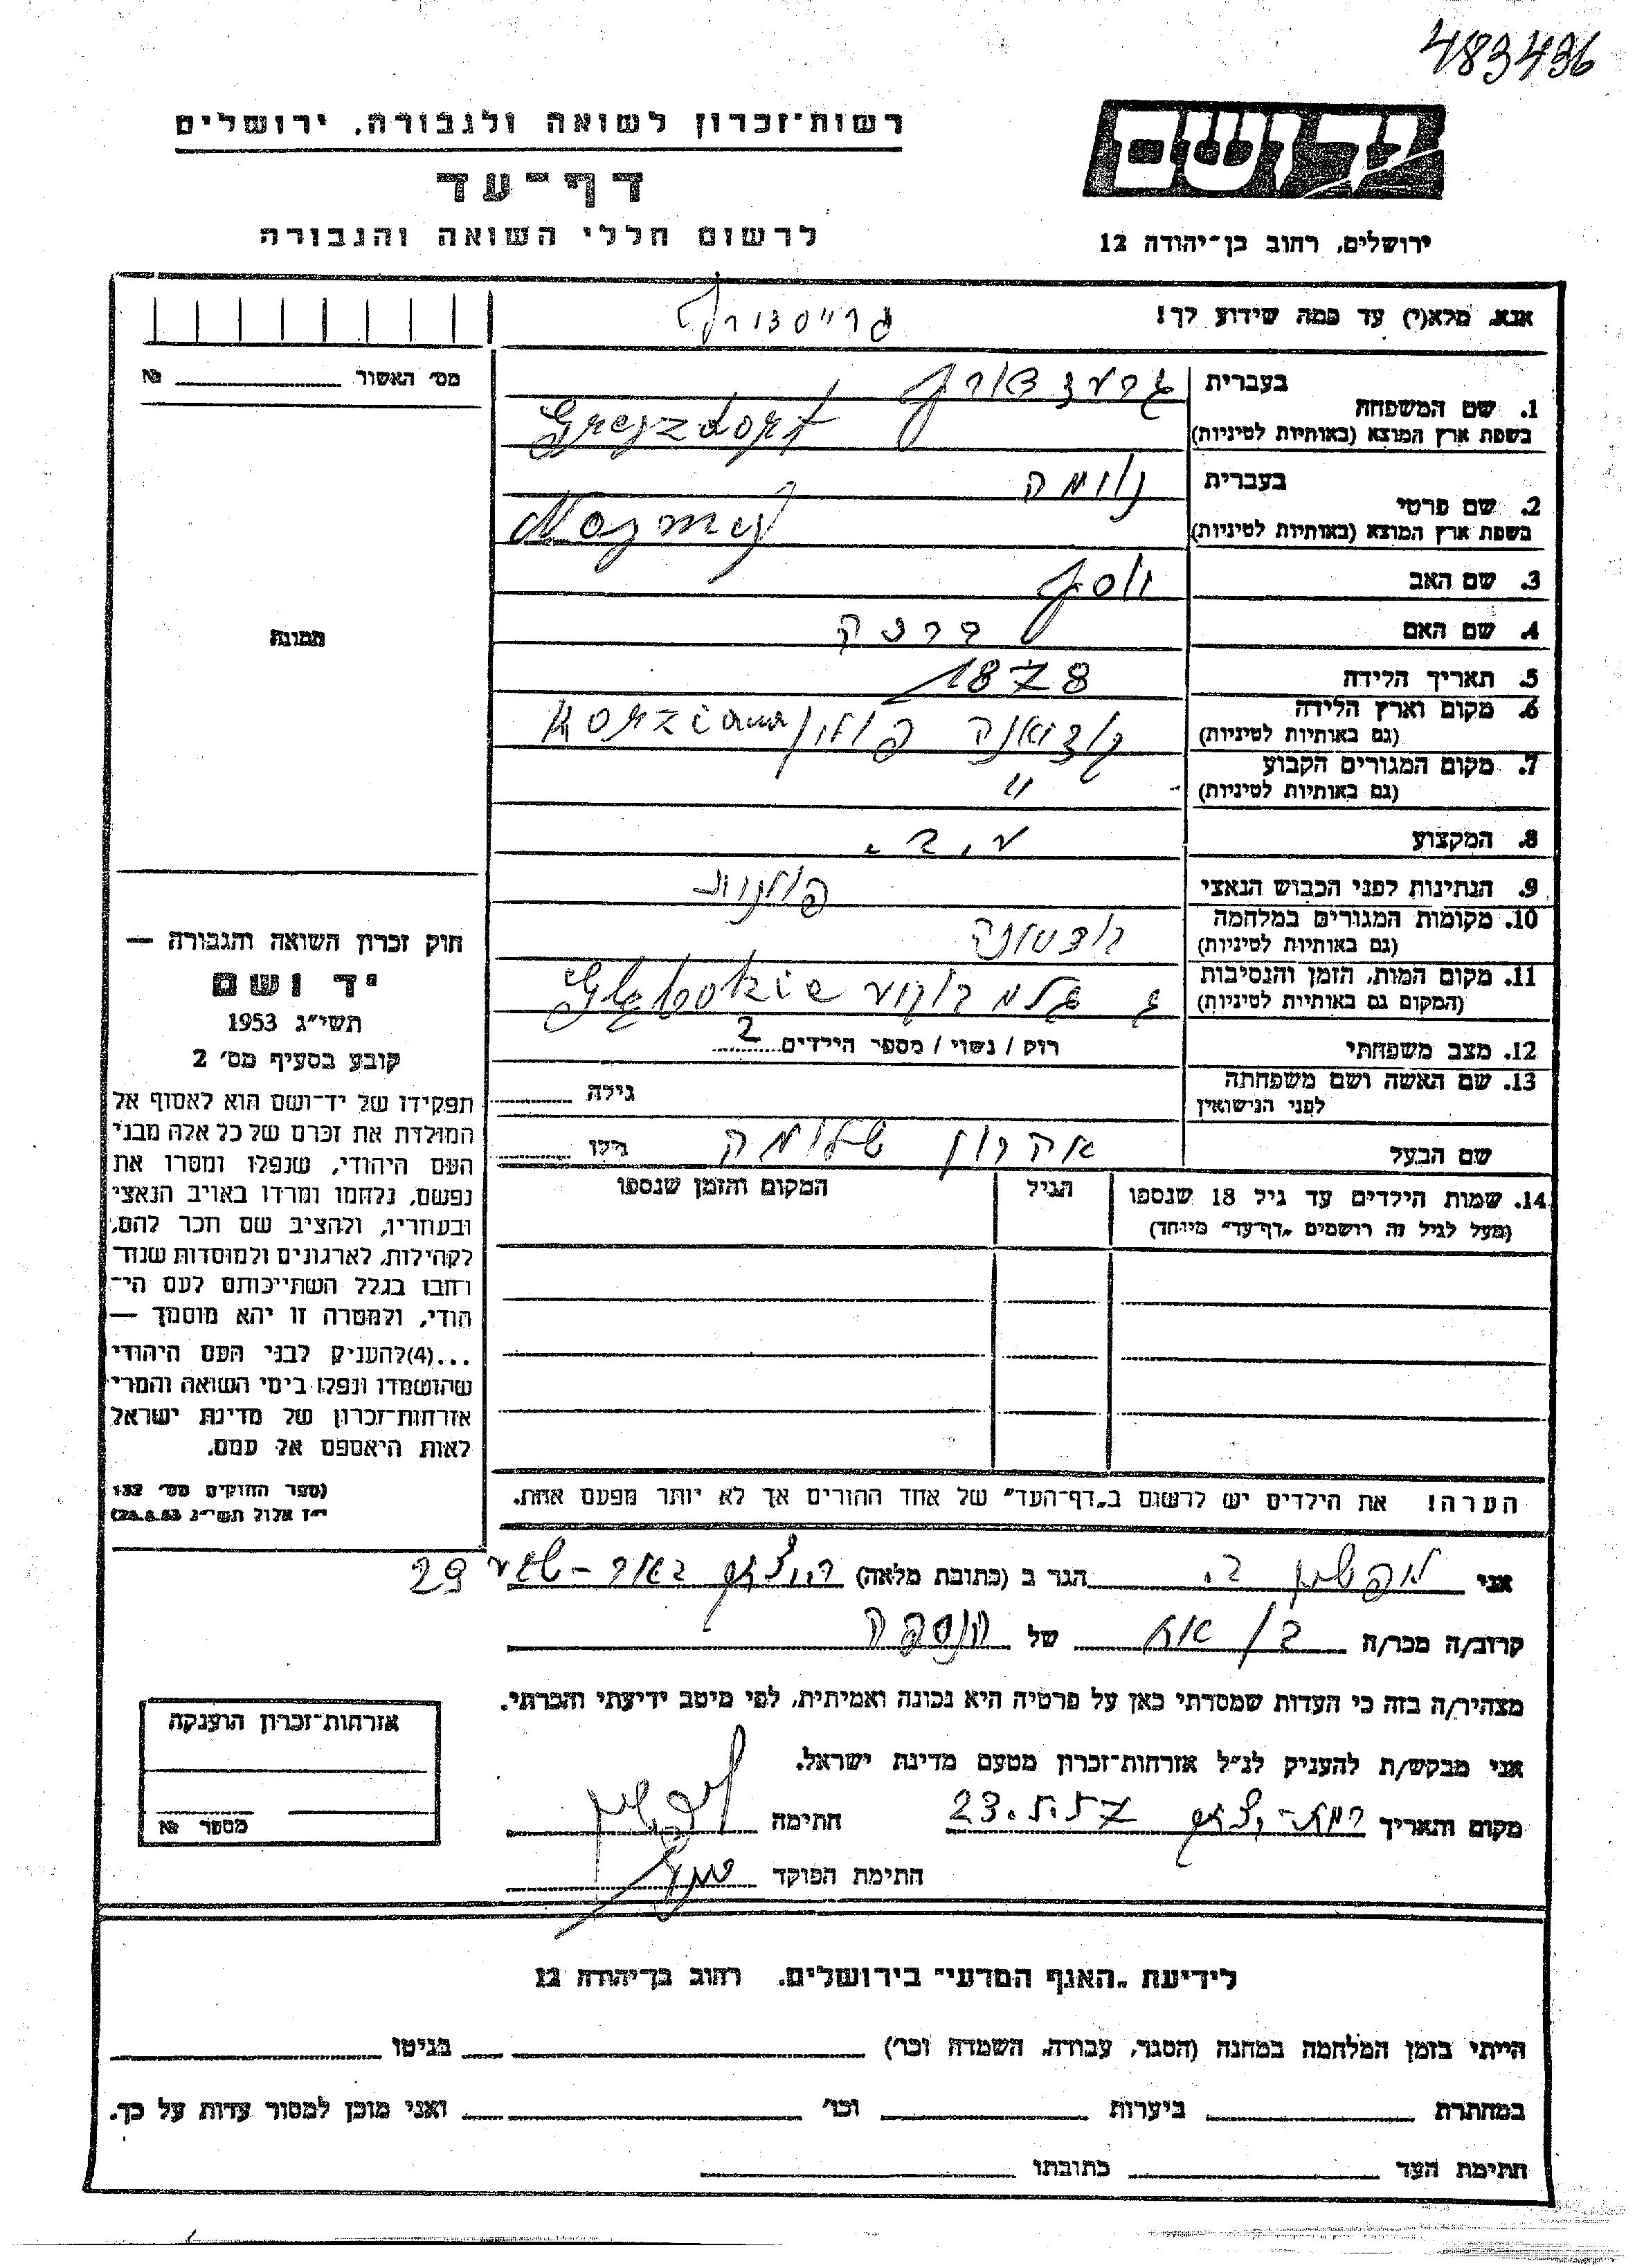 483436
יד ושם
רשות־זכרון לשואה ולגבורה, ירושלים
דף־עד
לרשום חללי השואה והגבורה
ירושלים, רחוב בן־יהודה 12
אנא, מלא(י) עד כמה שידוע לך!
גרייסדורף
מס׳ האשור № 
1. שם המשפחה בעברית
בשפת ארץ המוצא (באותיות לטיניות) Grejzdorf
2. שם פרטי בעברית נוימה
בשפת ארץ המוצא (באותיות לטיניות)
3. שם האב יוסף
4. שם האם ברכה
5. תאריך הלידה 1878
6. מקום וארץ הלידה פולין
(גם באותיות לטיניות)
7. מקום המגורים הקבוע "
(גם באותיות לטיניות)
8. המקצוע ע.ב.
9. הנתינות לפני הכבוש הנאצי פולנית
10. מקומות המגורים במלחמה
(גם באותיות לטיניות)
11. מקום המות, הזמן והנסיבות Głębokie
(המקום גם באותיות לטיניות)
12. מצב משפחתי רוק / נשוי / מספר הילדים 2
13. שם האשה ושם משפחתה גילה
לפני הנישואין
שם הבעל אהרון שלומה גילו
14. שמות הילדים עד גיל 18 שנספו הגיל המקום והזמן שנספו
(מעל לגיל זה רושמים „דף־עד״ מיוחד)
תמונה
חוק זכרון השואה והגבורה —
יד ושם
תשי״ג 1953
קובע בסעיף מס׳ 2
תפקידו של יד־ושם הוא לאסוף אל
המולדת את זכרם של כל אלה מבני
העם היהודי, שנפלו ומסרו את
נפשם, נלחמו ומרדו באויב הנאצי
ובעוזריו, ולהציב שם וזכר להם,
לקהילות, לארגונים ולמוסדות שנח־
רבו בגלל השתייכותם לעם הי־
הודי, ולמטרה זו יהא מוסמך —
...(4)להעניק לבני העם היהודי
שהושמדו ונפלו בימי השואה והמרי
אזרחות־זכרון של מדינת ישראל
לאות היאספם אל עמם.
(ספר החוקים מס׳ 132
י״ז אלול תשי״ג 28.8.53)
הערה! את הילדים יש לרשום ב„דף־העד״ של אחד ההורים אך לא יותר מפעם אחת.
אני ב. הגר ב (כתובת מלאה) 29
קרוב/ה מכר/ה בן אח של הנספה
מצהיר/ה בזה כי העדות שמסרתי כאן על פרטיה היא נכונה ואמיתית, לפי מיטב ידיעתי והכרתי.
אני מבקש/ת להעניק לנ״ל אזרחות־זכרון מטעם מדינת ישראל.
מקום ותאריך 23. חתימה
חתימת הפוקד
אזרחות־זכרון הוענקה
מספר №
לידיעת „האגף המדעי״ בירושלים. רחוב בן־יהודה 12
הייתי בזמן המלחמה במחנה (הסגר, עבודה, השמדה וכו׳) בגיטו
במחתרת ביערות וכו׳ ואני מוכן למסור עדות על כך.
חתימת העד כתובתו